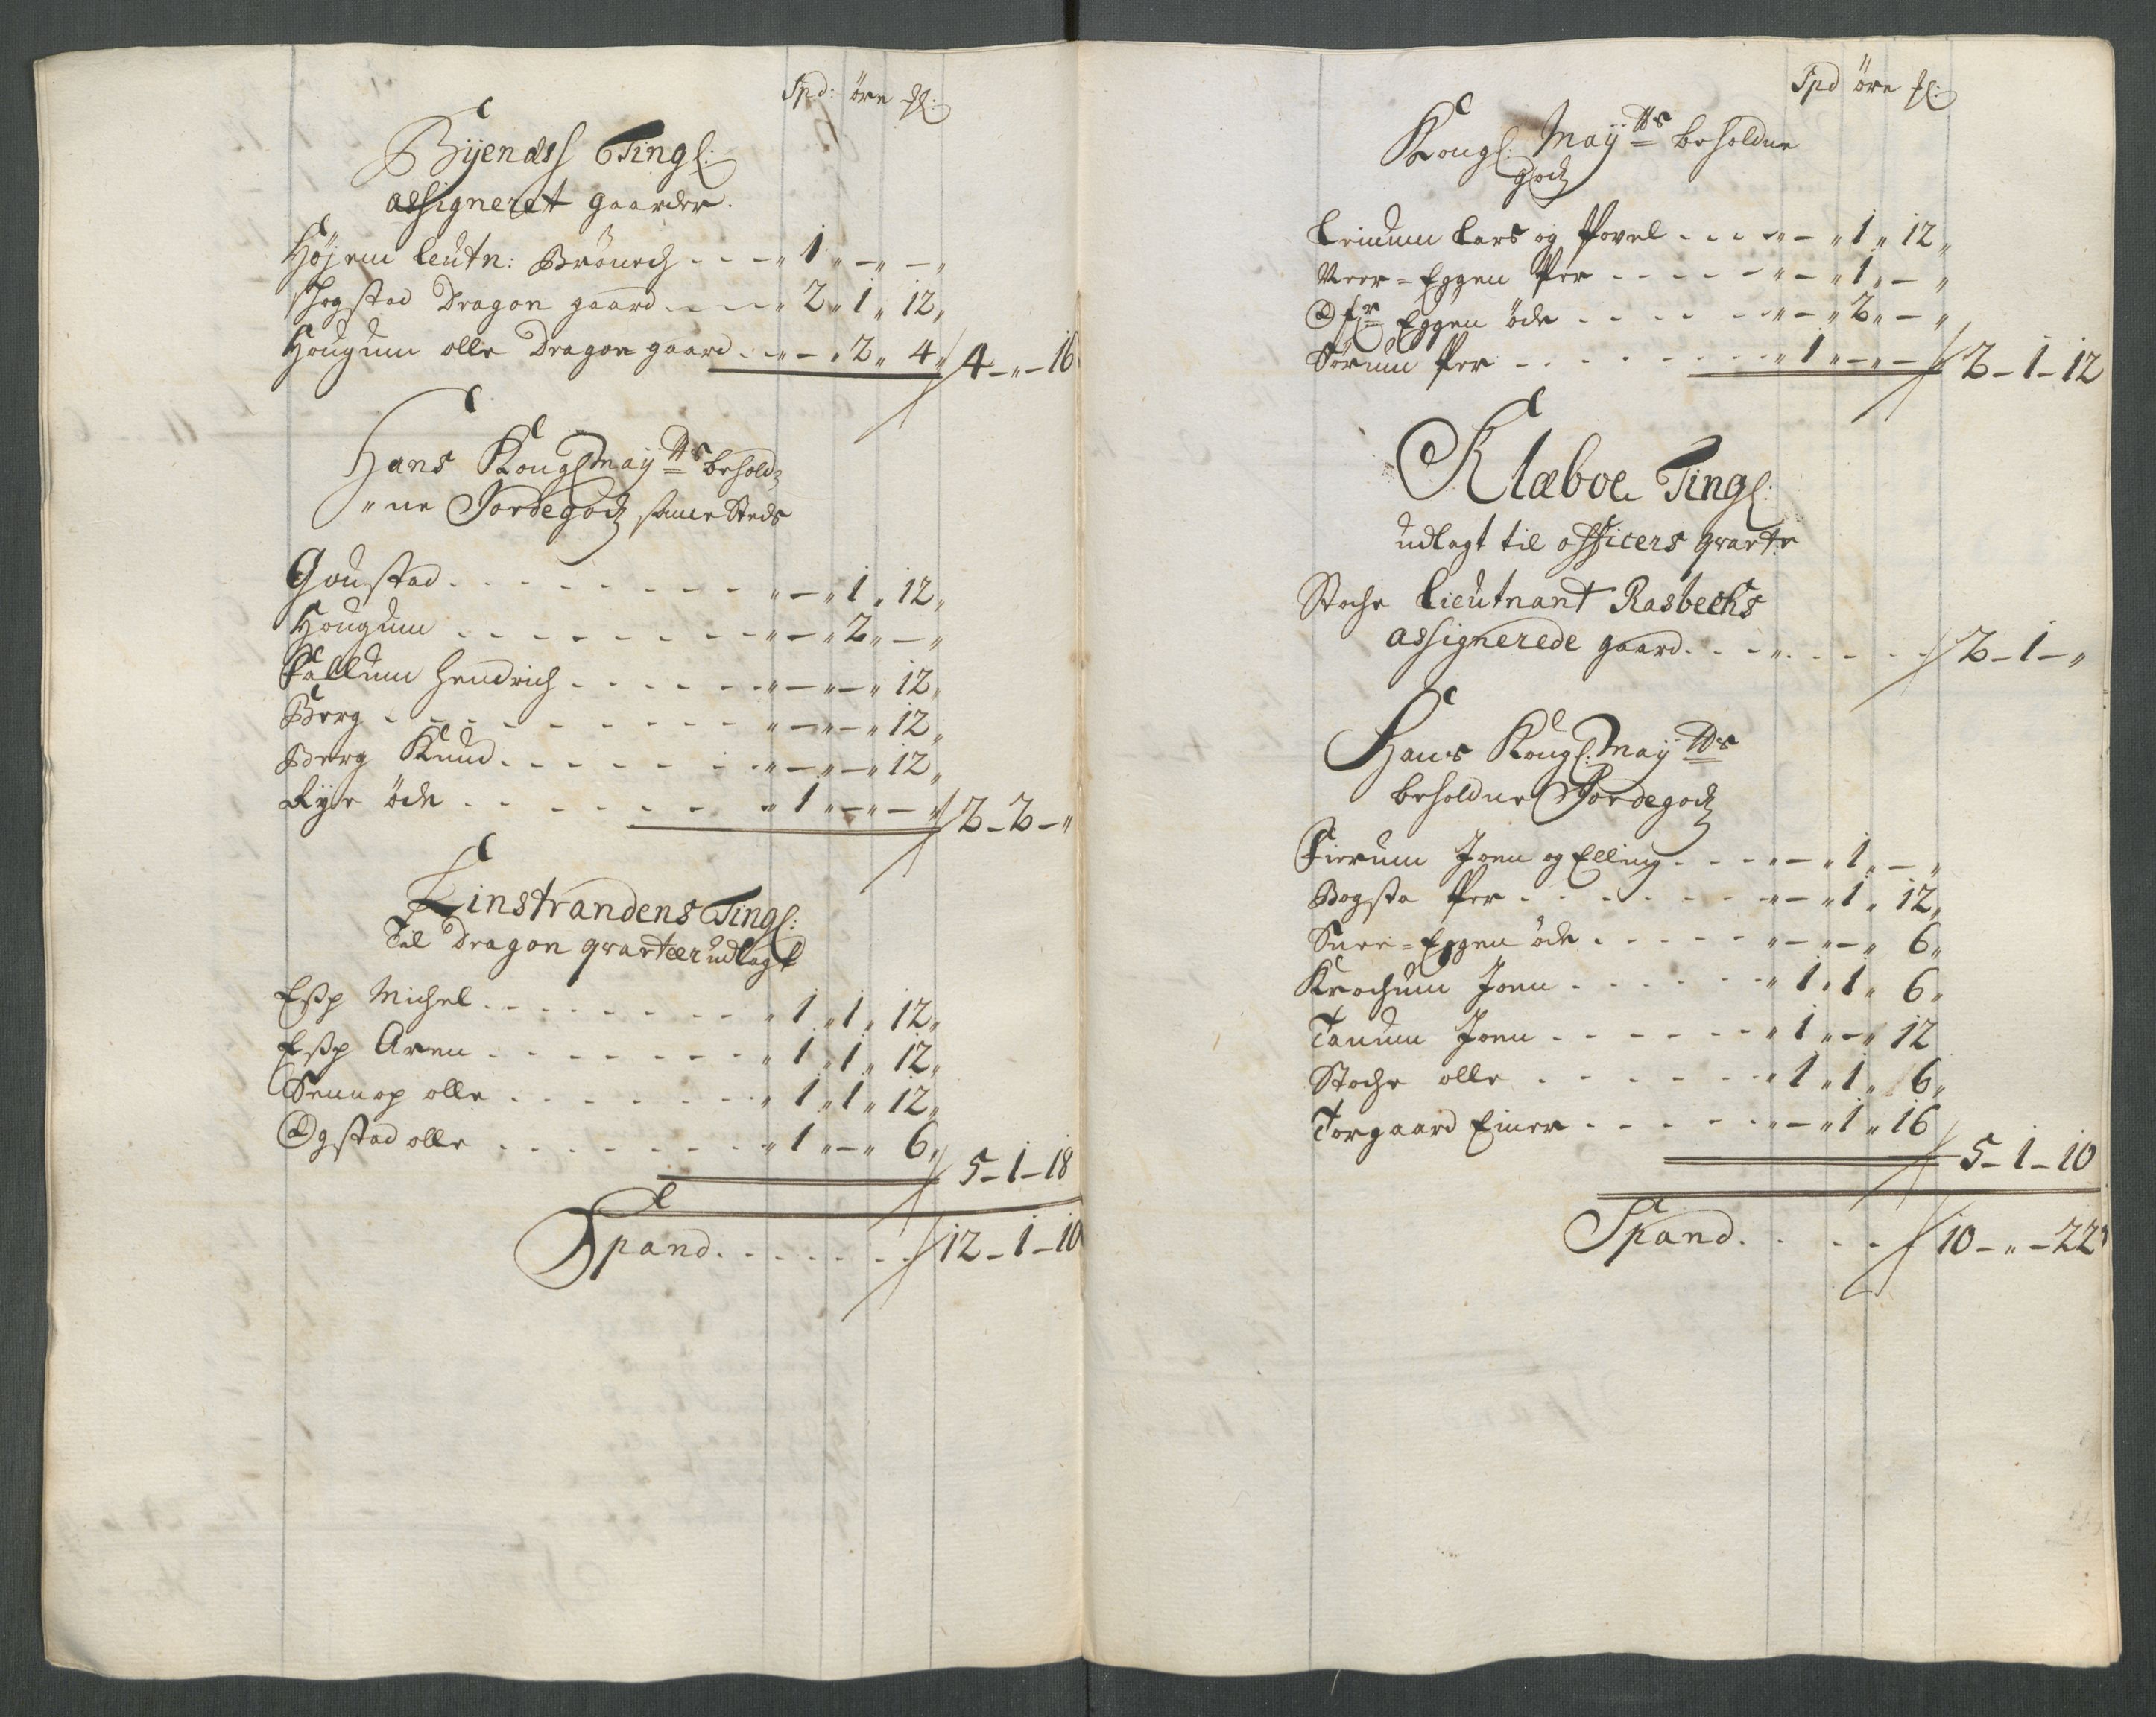 Spd: öre ſl:
Bÿenæss Tingl:
assigneret gaarder.
Höjem Leutn: Brönech - - - " 1 " - " - "
Shogstad Dragon gaard - - - " 2 " 1 " 12 "
Hougum olle Dragon gaard - - " - " 2 " 4 " 4 - " - 16
Hans Kongl Maÿtts behold-
"ne Jordegodz samme Steds
Goustad - - - - - - - " - " 1 " 12 "
Hougum - - - - - - - " - " 2 " - "
Fallum Hendrich - - - - - " - " - " 12 "
Berg - - - - - - - - " - " - " 12 "
Berg Knud - - - - - - " - " - " 12 "
Rÿe öde - - - - - - - " 1 " - " - " 2 - 2 - "
Leinstrandens Tingl:
Til Dragon qvarteer udlagt
Esp Michel - - - - - - - " 1 " 1 " 12 "
Esp Aren - - - - - - - " 1 " 1 " 12 "
Ennop olle - - - - - - - " 1 " 1 " 12 "
Ogstad olle - - - - - - - " 1 " - " 6 " 5 - 1 - 18
Spand - - - - - - 12 - 1 - 10
Spd öre ſl:
Kongl: Maÿtts beholdne
godz
Leinum Lars og Povel - - - " - " 1 " 12 "
Neer-Eggen Per - - - - - " - " 1 " - "
Ofr Eggen öde - - - - - " - " 2 " - "
Sörum Per - - - - - - - " 1 " - " - 2 - 1 - 12
Klæboe Tingl:
udlagt til officers qvarter
Stoche Lieutnant Rasbechs
assignerede gaard - - - " - - - - 2 - 1 - "
Hans Kongl: Maÿtts
beholdne Jordegodz
Fierum Joen og Elling - - - " - " 1 " - "
Rogsta Per - - - - - - - " - " 1 " 12 "
Suee-Eggen öde - - - - - " - " - " 6 "
Krochum Joen - - - - - - " 1 " 1 " 6 "
Tanum Joen - - - - - - " 1 " - " 12
Stoche olle - - - - - - " 1 " 1 " 6 "
Torgaard Einer - - - - - " - " 1 " 16 5 - 1 - 10
Spand - - - - 10 - " - 22